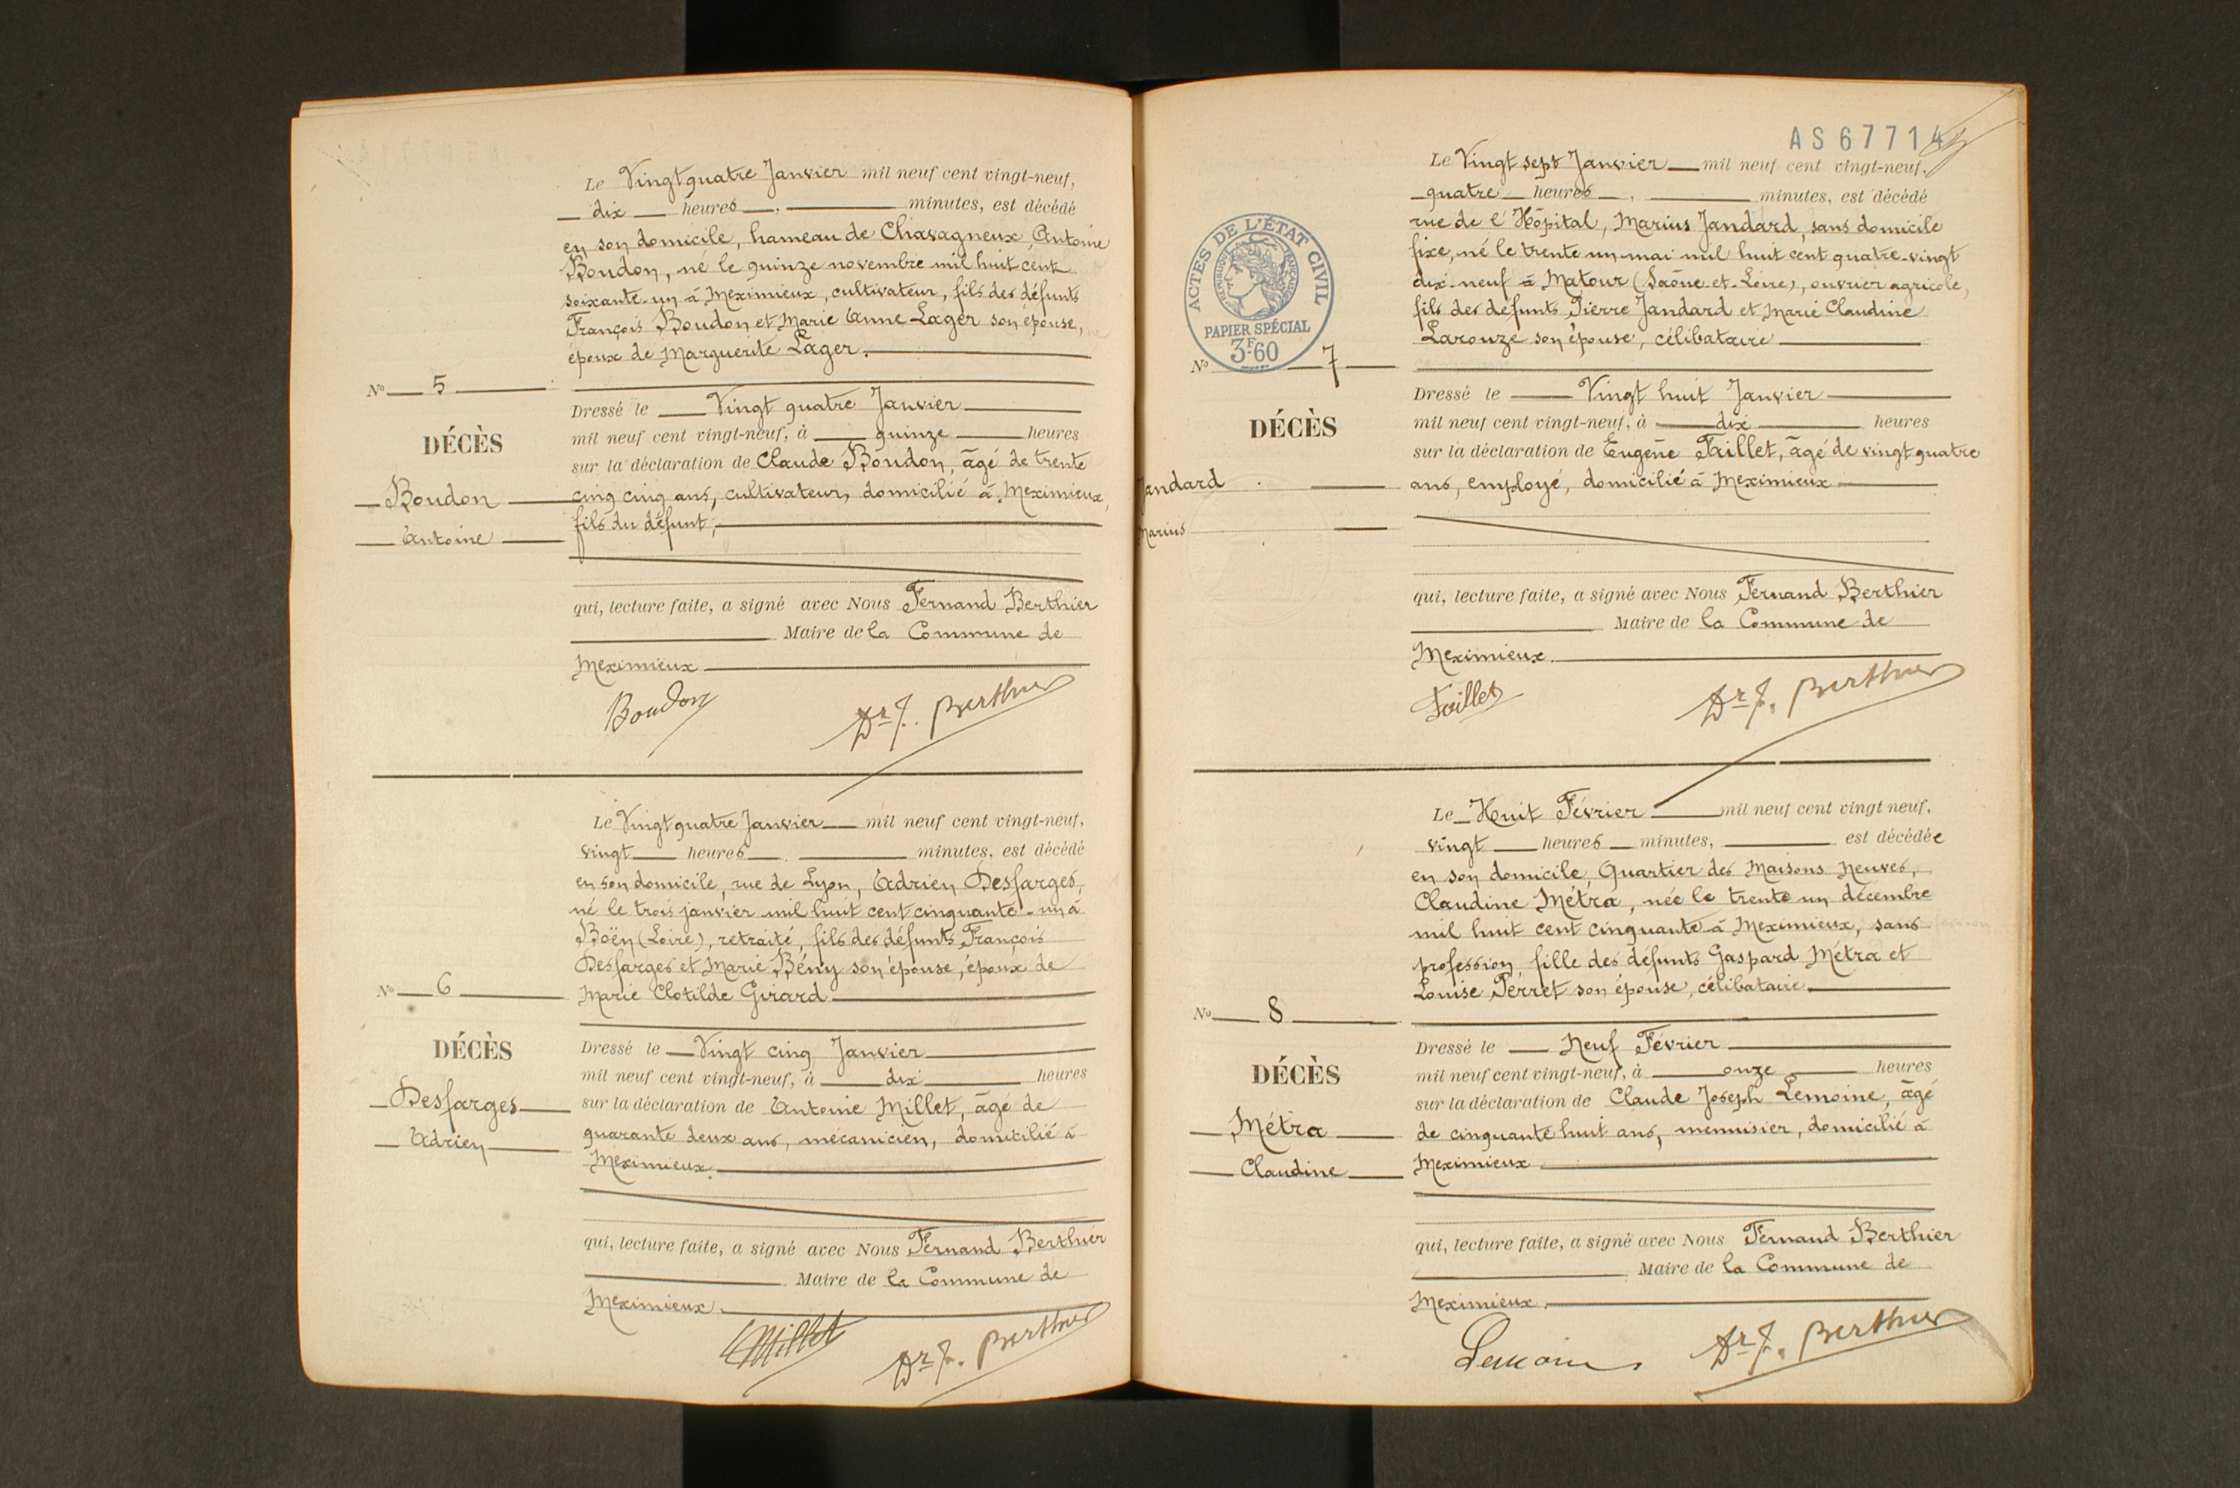 Le Vingt quatre Janvier mil neuf cent vingt-neuf,
dix heures, minutes, est décédé
en son domicile, hameau de Chavagneux, Antoine
Boudon, né le quinze novembre mil huit cent
soixante-un à Meximieux, cultivateur, fils des défunts
François Boudon et Marie Anne Lager son épouse,
époux de Marguerite Lager.
No 5
Dressé le Vingt quatre Janvier
mil neuf cent vingt-neuf, à quinze heures
DÉCÈS
sur la déclaration de Claude Boudon, âgé de trente
Boudon
cinq cinq ans, cultivateur, domicilié à Meximieux,
fils du défunt,
Antoine
qui, lecture faite, a signé avec Nous Fernand Berthier
Maire de la Commune de
Meximieux
Boudon Dr F. Berthier
Le Vingt quatre Janvier mil neuf cent vingt-neuf,
vingt heures minutes, est décédé
en son domicile, rue de Lyon, Adrien Desfarges,
né le trois janvier mil huit cent cinquante-un à
Boën (Loire), retraité, fils des défunts François
Desfarges et Marie Bény son épouse, époux de
No 6
Marie Clotilde Girard
DÉCÈS
Dressé le Vingt cinq Janvier
mil neuf cent vingt-neuf, à dix heures
Desfarges
sur la déclaration de Antoine Millet, âgé de
Adrien
quarante deux ans, mécanicien, domicilié à
Meximieux.
qui, lecture faite, a signé avec Nous Fernand Berthier
Maire de la Commune de
Meximieux.
Millet Dr F. Berthier
AS 67714
Le Vingt sept Janvier mil neuf cent vingt-neuf.
quatre heures, minutes, est décédé
rue de l'Hôpital, Marius Jandard, sans domicile
fixe, né le trente un mai mil huit cent quatre-vingt
dix-neuf à Matour (Saône-et-Loire), ouvrier agricole,
fils des défunts Pierre Jandard et Marie Claudine
Larouze son épouse, célibataire
ACTES DE L'ÉTAT CIVIL
RÉPUBLIQUE FRANÇAISE
PAPIER SPÉCIAL
3F.60
No 7
Dressé le Vingt huit Janvier
mil neuf cent vingt-neuf, à dix heures
DÉCÈS
sur la déclaration de Eugène Faillet, âgé de vingt quatre
Jandard
ans, employé, domicilié à Meximieux
Marius
qui, lecture faite, a signé avec Nous Fernand Berthier
Maire de la Commune de
Meximieux.
Faillet Dr F. Berthier
Le Huit Février mil neuf cent vingt neuf,
vingt heures minutes, est décédée
en son domicile, Quartier des Maisons Neuves,
Claudine Métra, née le trente un décembre
mil huit cent cinquante à Meximieux, sans
profession, fille des défunts Gaspard Métra et
Louise Perret son épouse, célibataire.
No 8
Dressé le Neuf Février
DÉCÈS
mil neuf cent vingt-neuf, à onze heures
sur la déclaration de Claude Joseph Lemoine, âgé
Métra
de cinquante huit ans, menuisier, domicilié à
Claudine
Meximieux
qui, lecture faite, a signé avec Nous Fernand Berthier
Maire de la Commune de
Meximieux.
Lemoine Dr F. Berthier